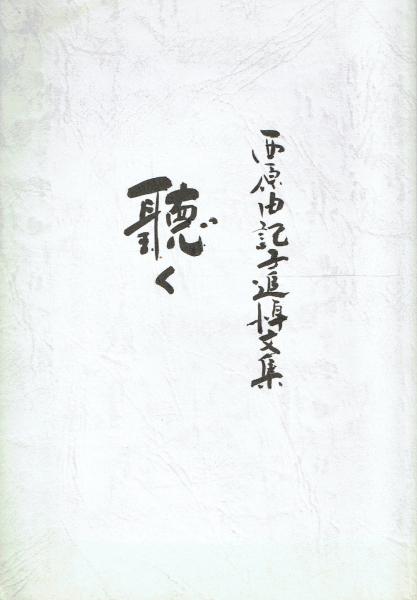 西原由記子追悼文集
聴く